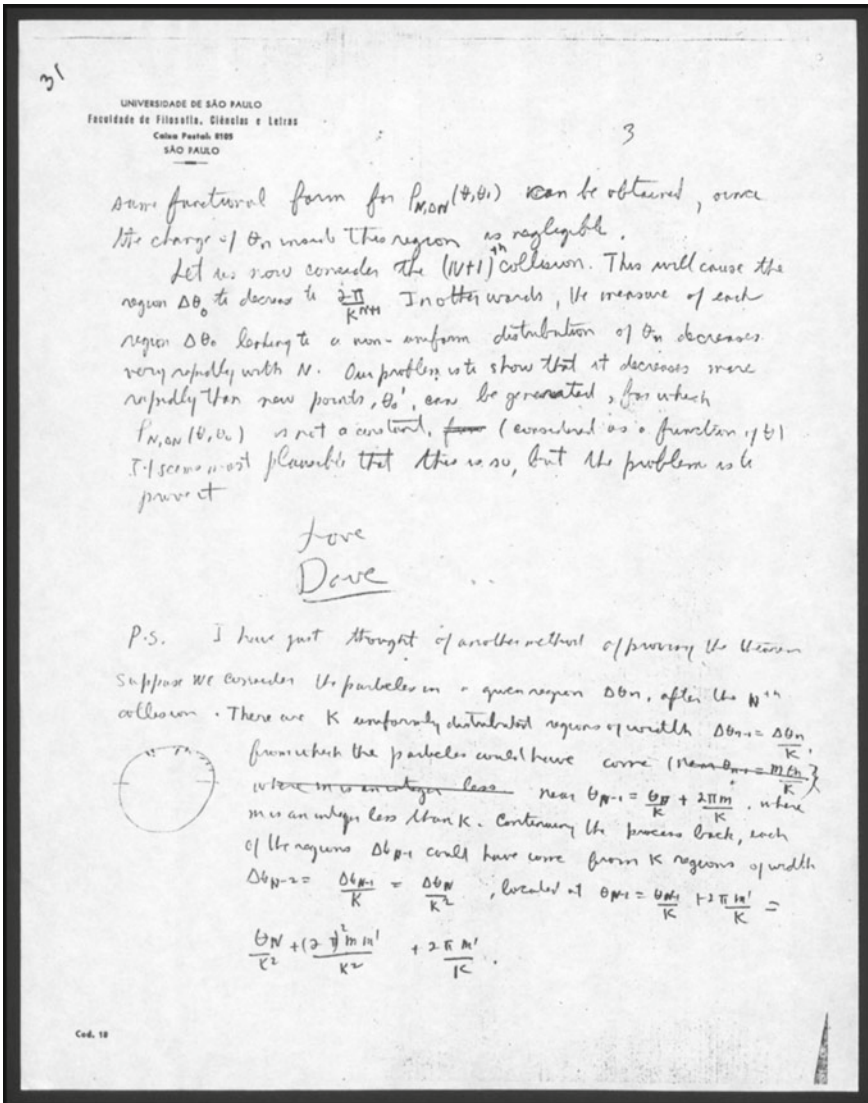 31
UNIVERSIDADE DE SÃO PAULO
Faculdade de Filosofia, Ciências e Letras
Caixa Postal: 8105
SÃO PAULO
3
same functional form for P_{N,ΔN}(θ,θ₀) can be obtained, since
the change of θn inside this region is negligible.
Let us now consider the (N+1)th collision. This will cause the
region Δθ₀ to decrease to 2π/K^{N+1} In other words, the measure of each
region Δθ₀ leading to a non-uniform distribution of θn decreases
very rapidly with N. Our problem is to show that it decreases more
rapidly than new points, θ₀', can be generated, for which
P_{N,ΔN}(θ,θ₀) is not a constant, (considered as a function of θ)
It seems most plausible that this is so, but the problem is to
prove it
Love
Dave
P.S. I have just thought of another method of proving the theorem
Suppose we consider the particles in a given region Δθn, after the Nth
collision. There are K uniformly distributed regions of width Δθn-1 = Δθn/K,
from which the particles could have come (near θn-1 = mθn/K)
where m is an integer less near θN-1 = θN/K + 2πm/K, where
m is an integer less than K. Continuing the process back, each
of the regions ΔθN-1 could have come from K regions of width
ΔθN-2 = ΔθN-1/K = ΔθN/K², located at θN-1 = θN-1/K + 2πm'/K =
θN/K² + (2π)²mm'/K² + 2πm'/K.
Cod. 18